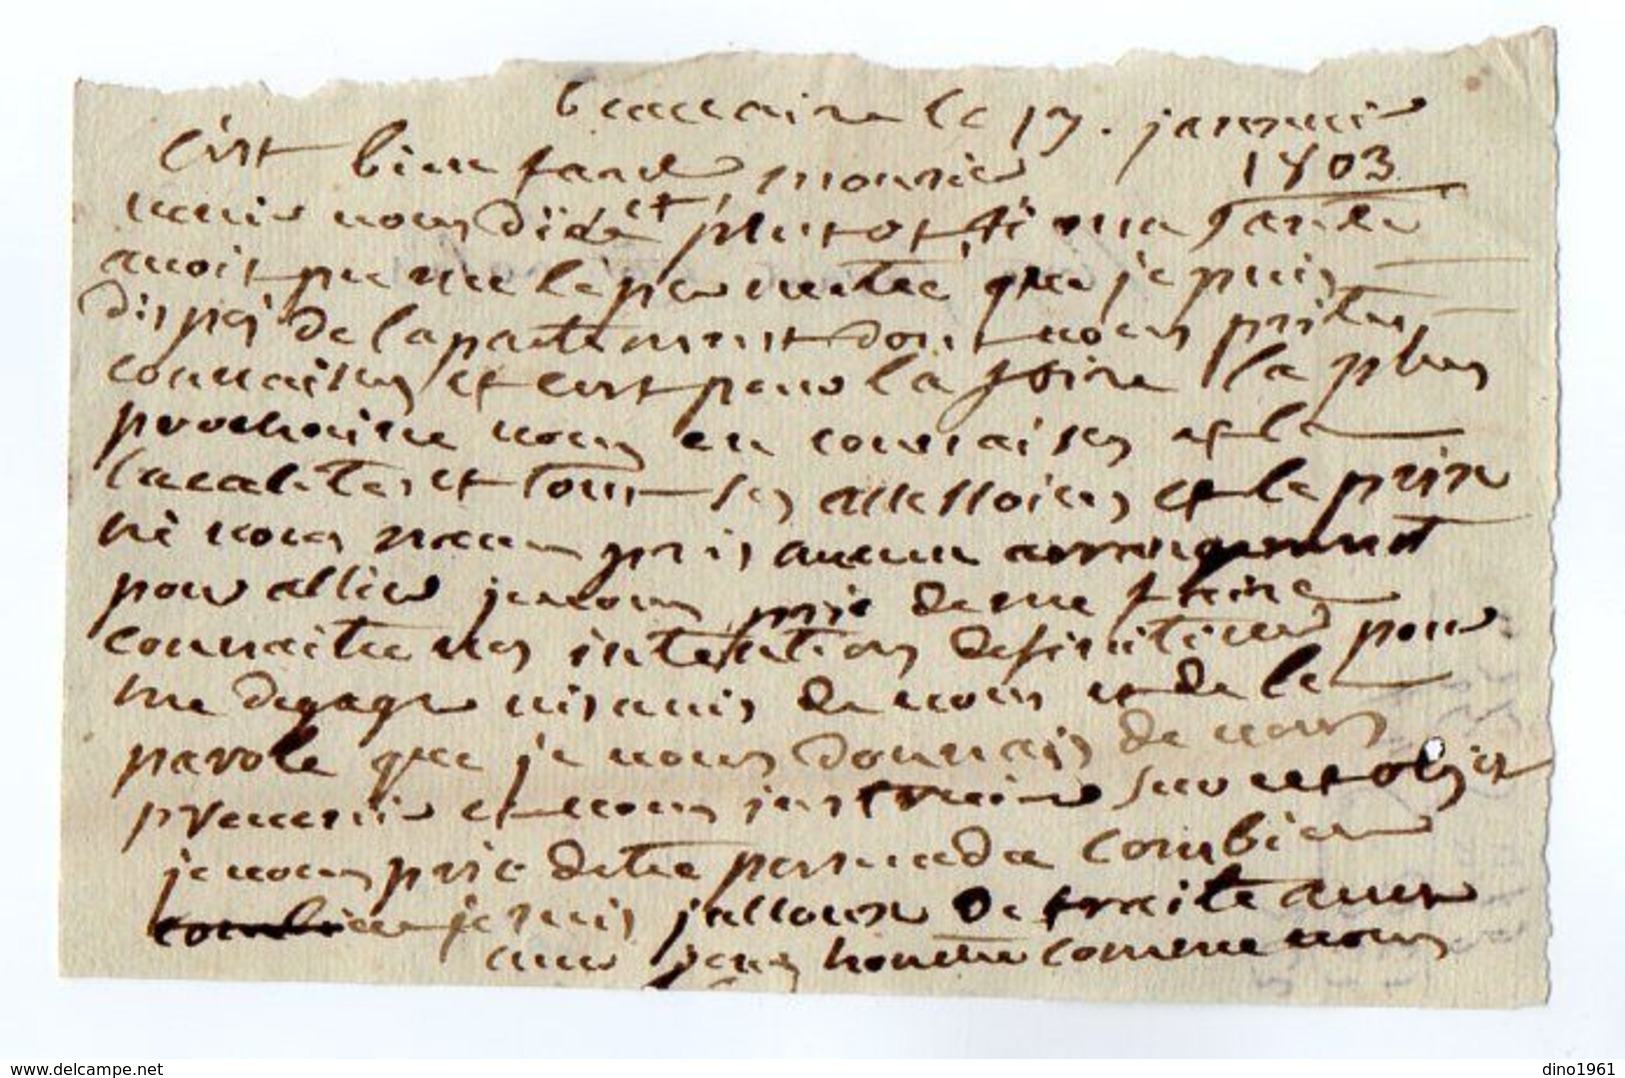 beaucaire le 17. janvier
1803
C'est bien fard monsieur
venir vous dide et plutot si ma santé
avoit pu me le permettre que je puis
dispos de lapartement dont vous prites
connaisses et c'est pour la foire la plus
prochaine vous en connaises et la
localités et tous ses assessoires et le prix
ne vous pris aucun arrangement
pour allier je vous prie de me faire
connaitre vos intentions definitives pour
me degager vis avis de vous et de la
parole que je vous donnais de vous
prevenir et vous instruire sur cet objet
je vous prie detre persuade combien
combien je suis jalloux de traite avec
un jeus honnete comme vous
delcampe.net
dino1961